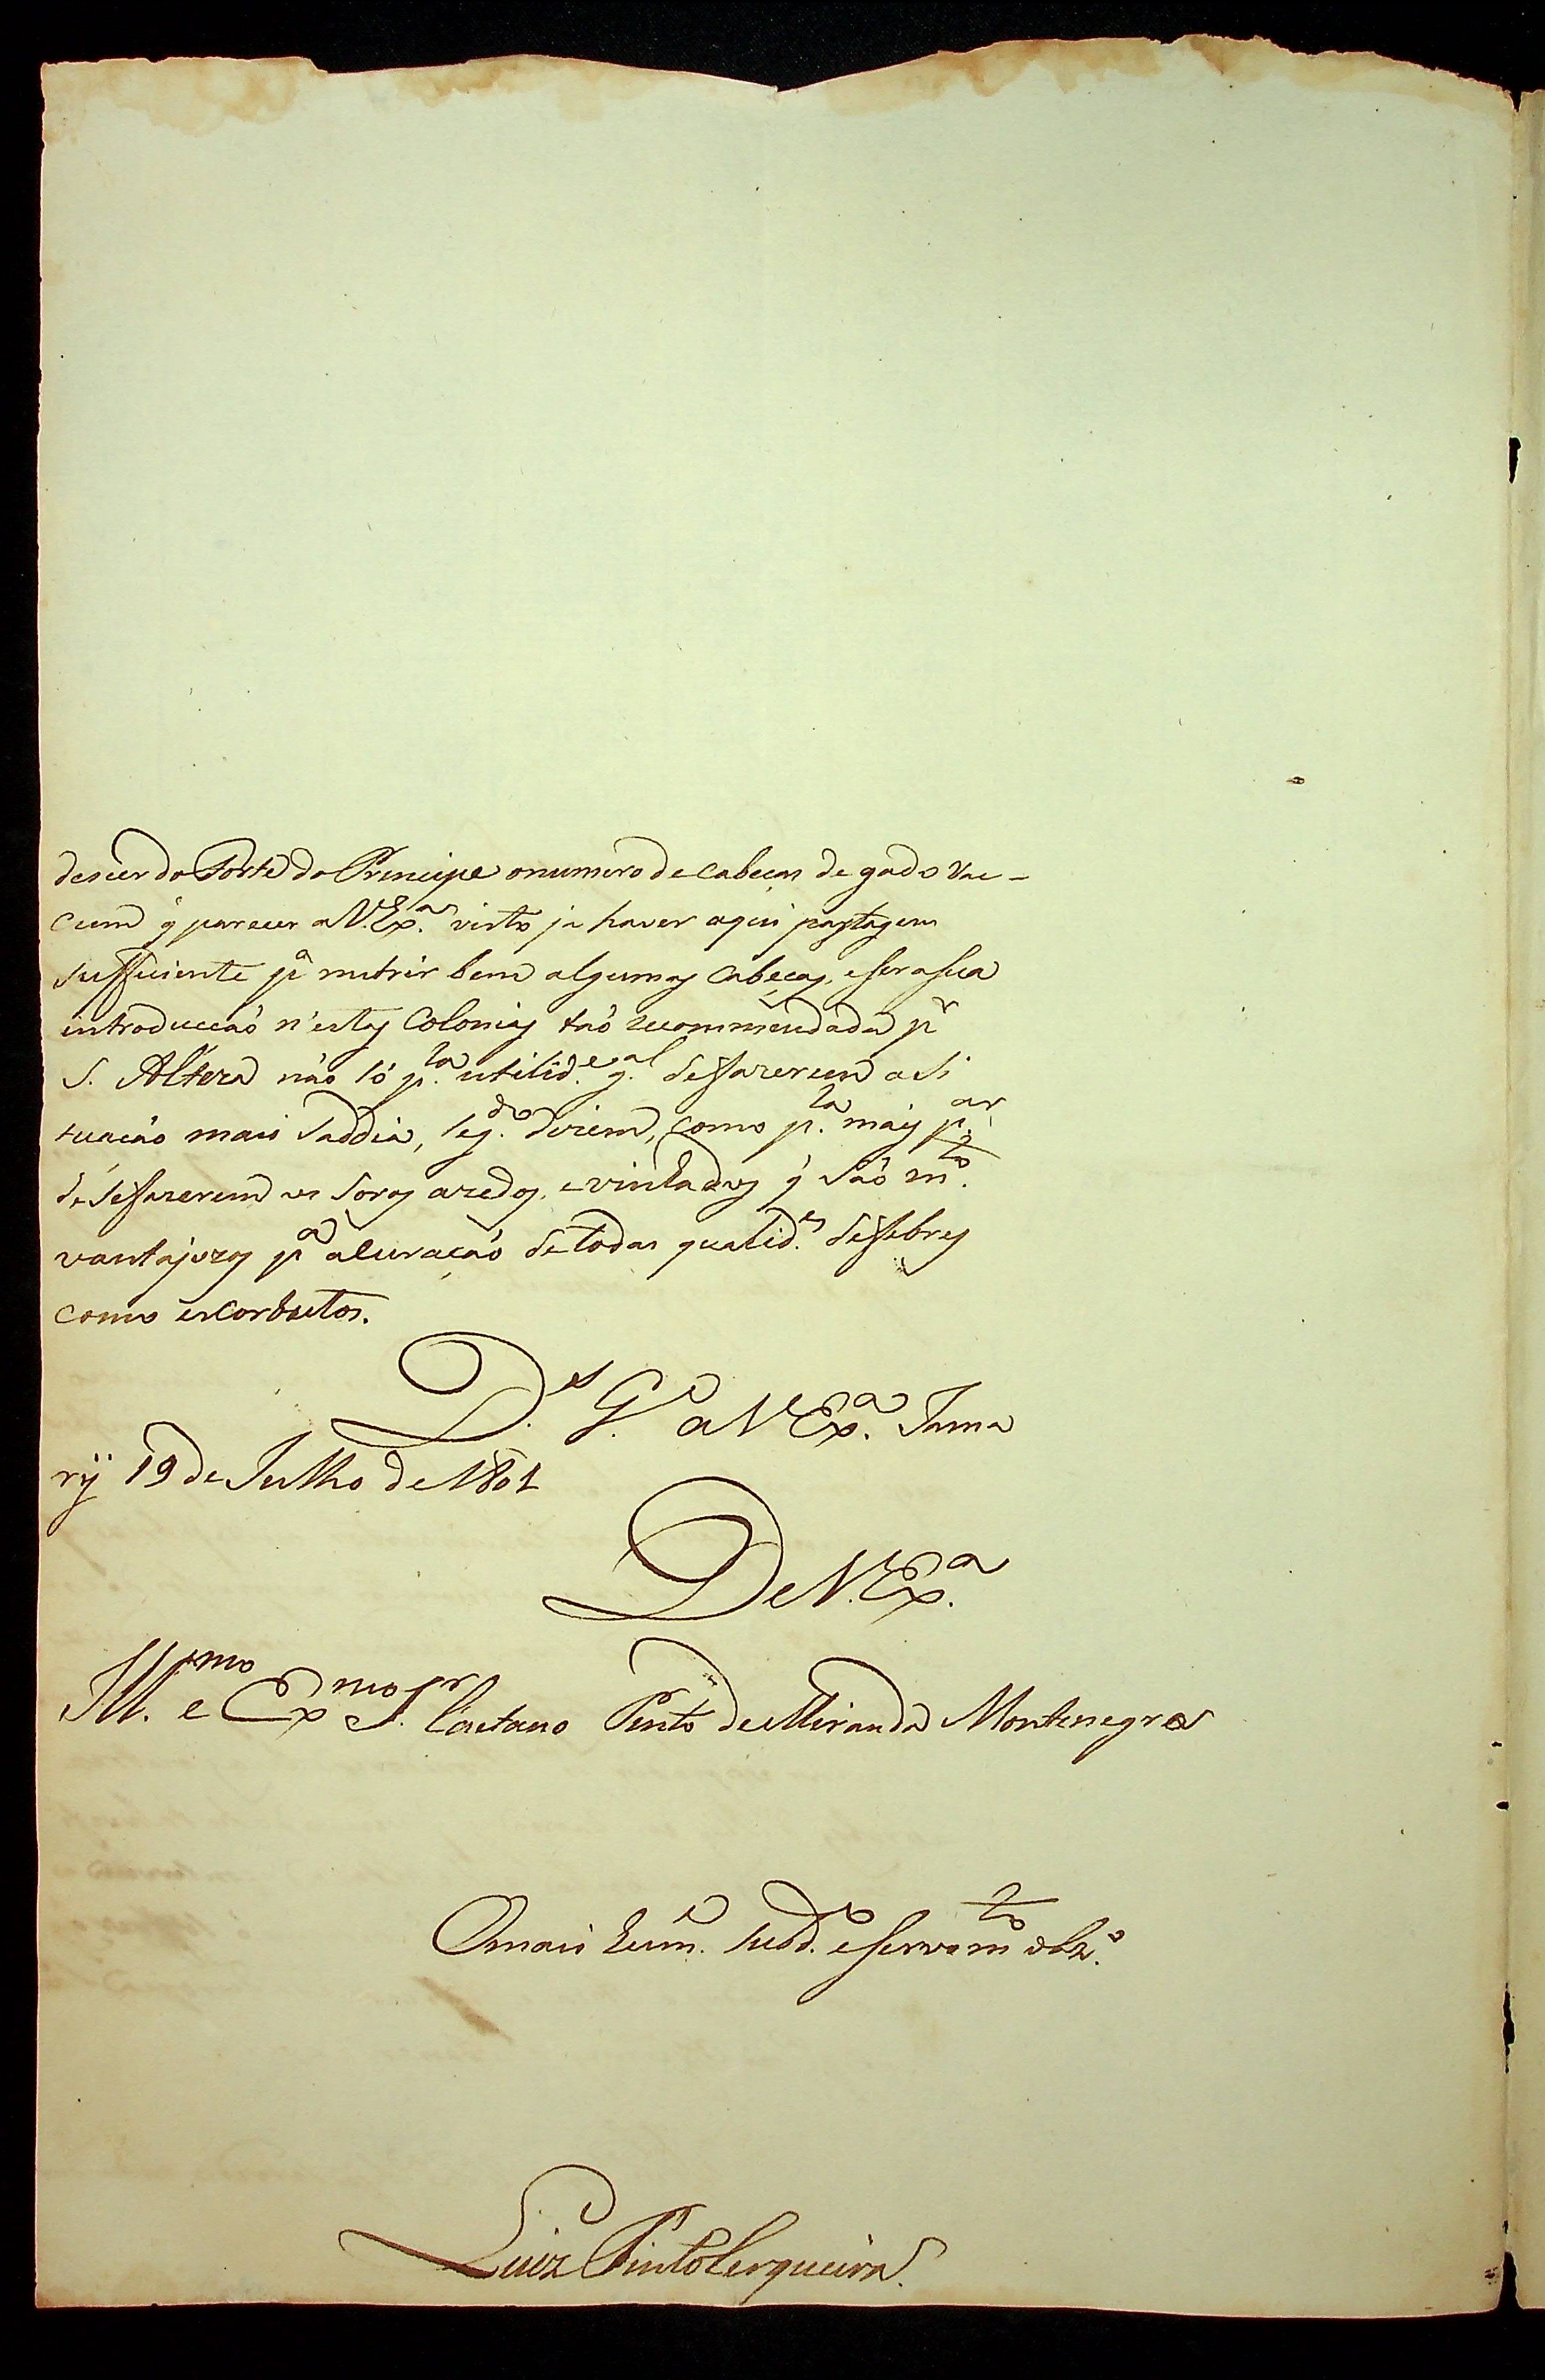 descer do Forte do Principe o numero de cabeças de gado vac-
cum q̃ parecer a V. Ex.ª visto ja haver aqui pastagem
sufficiente p.ª nutrir bem algumas cabeças, e ser a sua
introducçaó n'estas Colonias taó recommendada p.r
S. Alteza não só p.la utilid.e g.al de fazerem a si
tuação mais saddia, seg.do dizem, como p.la mais p.ar
de se fazerem os soros azedos, e vinhados q̃ são m.to
vantajozos p.ª a curação de todas qualid.es de febres
como escorbutos.
D.s G.e a V. Ex.ª Jama
rÿ 19 de Julho de 1801
De V. Ex.ª
Ill.mo e Ex.mo S.r Caetano Pinto de Miranda Montenegro
O mais hum.e subd.o e servo m.to obr.o
Luiz Pinto Cerqueira.